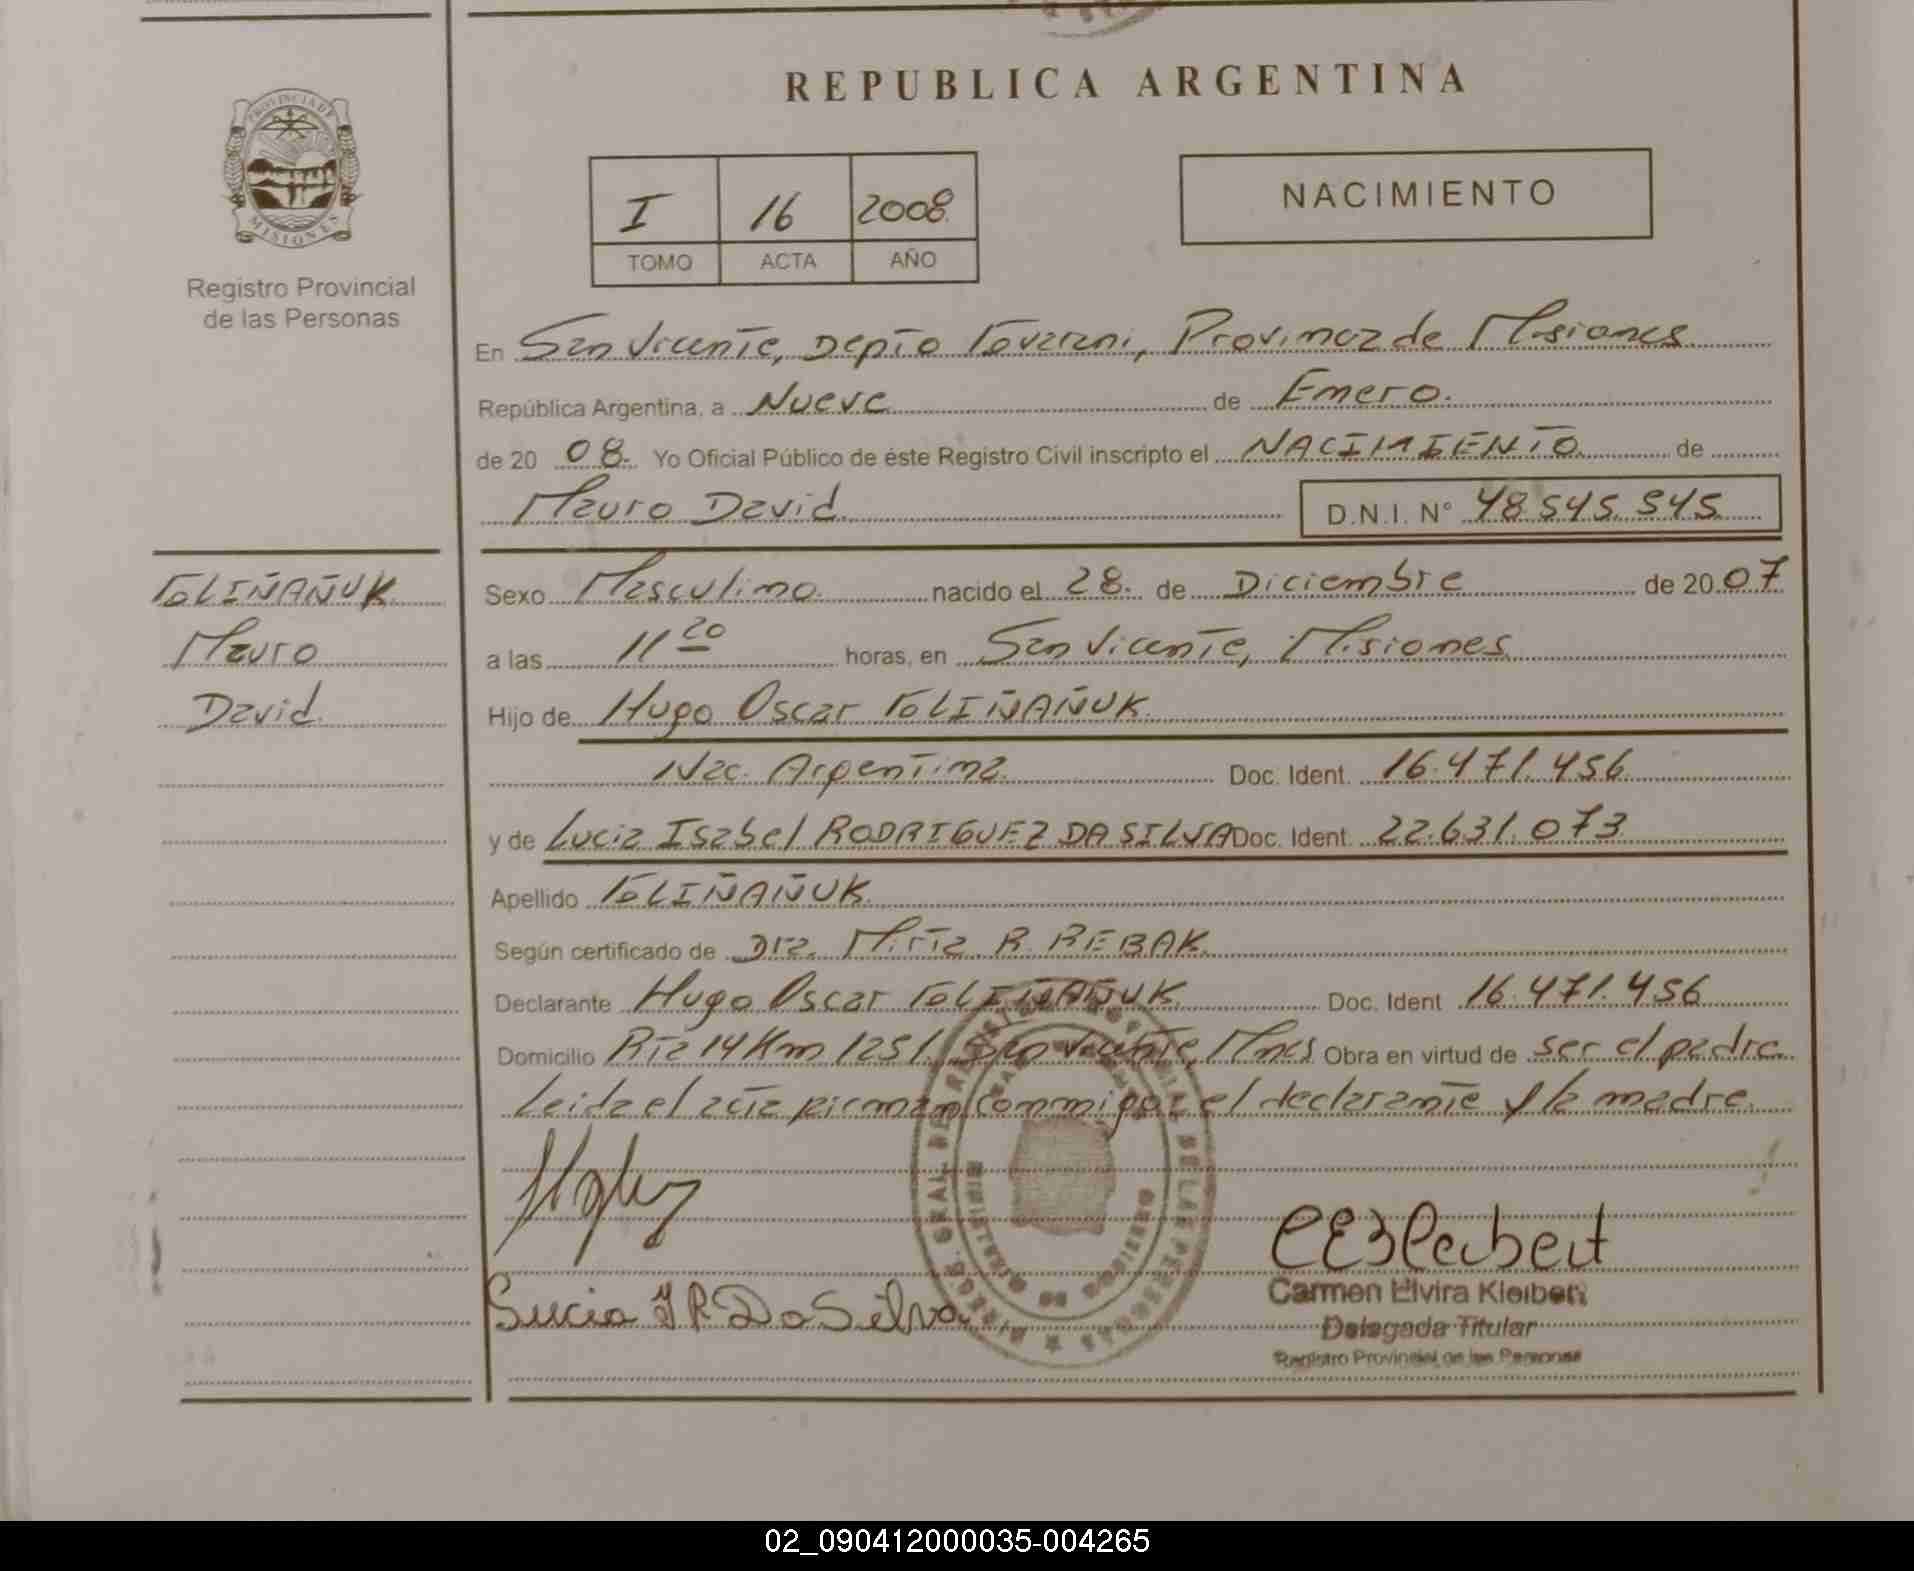 REPUBLICA ARGENTINA
PROVINCIA DE
MISIONES
Registro Provincial
de las Personas
I 16 2008
TOMO ACTA AÑO
NACIMIENTO
En San Vicente, Depto Guaraní, Provincia de Misiones
República Argentina, a Nueve de Enero.
de 20 08. Yo Oficial Público de éste Registro Civil inscripto el NACIMIENTO de
Mauro David D.N.I. N° 48.545.545
Sexo Masculino nacido el 28. de Diciembre de 20 07
a las 11 20 horas, en San Vicente, Misiones
Hijo de Hugo Oscar
Nac. Argentina Doc. Ident. 16.471.456
y de Lucia Isabel RODRIGUEZ DA SILVA Doc. Ident. 22.631.073
Apellido
Según certificado de Dra. Mirta R. REBAK.
Declarante Hugo Oscar Doc. Ident 16.471.456
Domicilio Rta 14 Km 1251. San Vicente, Mnes Obra en virtud de ser el padre.
Leida el acta firman conmigo el declarante y la madre.
Mauro
David
Lucia I R Da Silva
Carmen Elvira Kleibert
Delegada Titular
Registro Provincial de las Personas
02_090412000035-004265